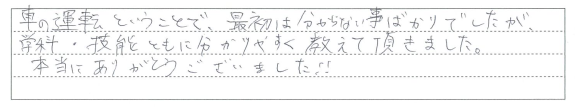 車の運転ということで、最初は分からない事ばかりでしたが、
学科・技能ともに分かりやすく教えて頂きました。
本当にありがとうございました!!